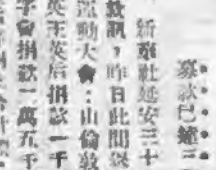 募款已達三
新華社延安三十
敦訊，昨日此間
運動大會：由倫敦
英王英后捐款一千
字會捐款一萬五千